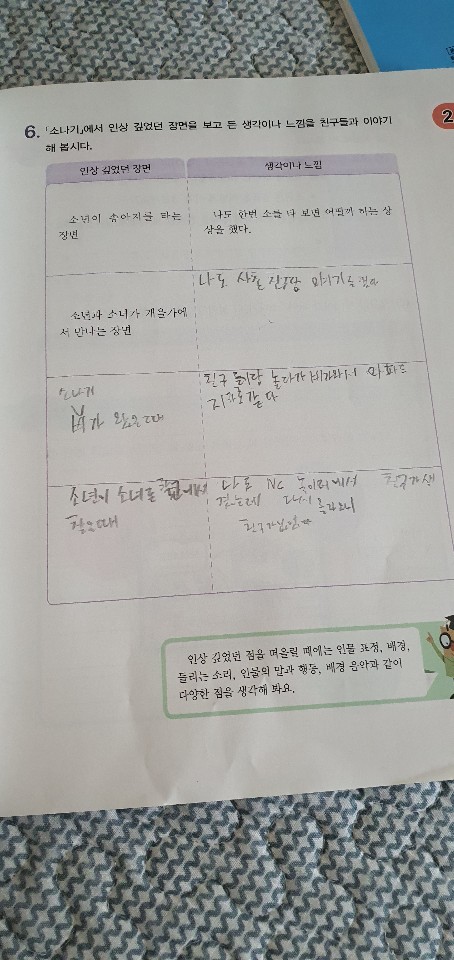 6. 「소나기」에서 인상 깊었던 장면을 보고 든 생각이나 느낌을 친구들과 이야기
해 봅시다.
2
인상 깊었던 장면
생각이나 느낌
소년이 송아지를 타는
장면
나도 한번 소를 타 보면 어떨까 하는 상
상을 했다.
소년과 소녀가 개울가에
서 만나는 장면
나도
소나기
비가 왔을때
친구들이랑 놀다가 비가와서 아파트
소년이 소녀를
나도 NC 놀이터에서 친구가
인상 깊었던 점을 떠올릴 때에는 인물 표정, 배경,
들리는 소리, 인물의 말과 행동, 배경 음악과 같이
다양한 점을 생각해 봐요.